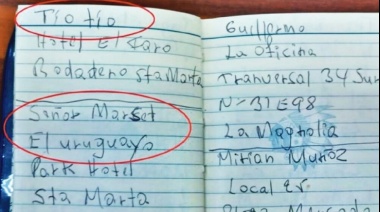 Tío tío
Hotel El Faro
Rodadero Sta Marta
Señor Marset
El uruguayo
Park Hotel
Sta Marta
Guillermo
La Oficina
Tranversal 34 Sur
N= 31 E 98
La Magnolia
Mirian Muñoz
Local